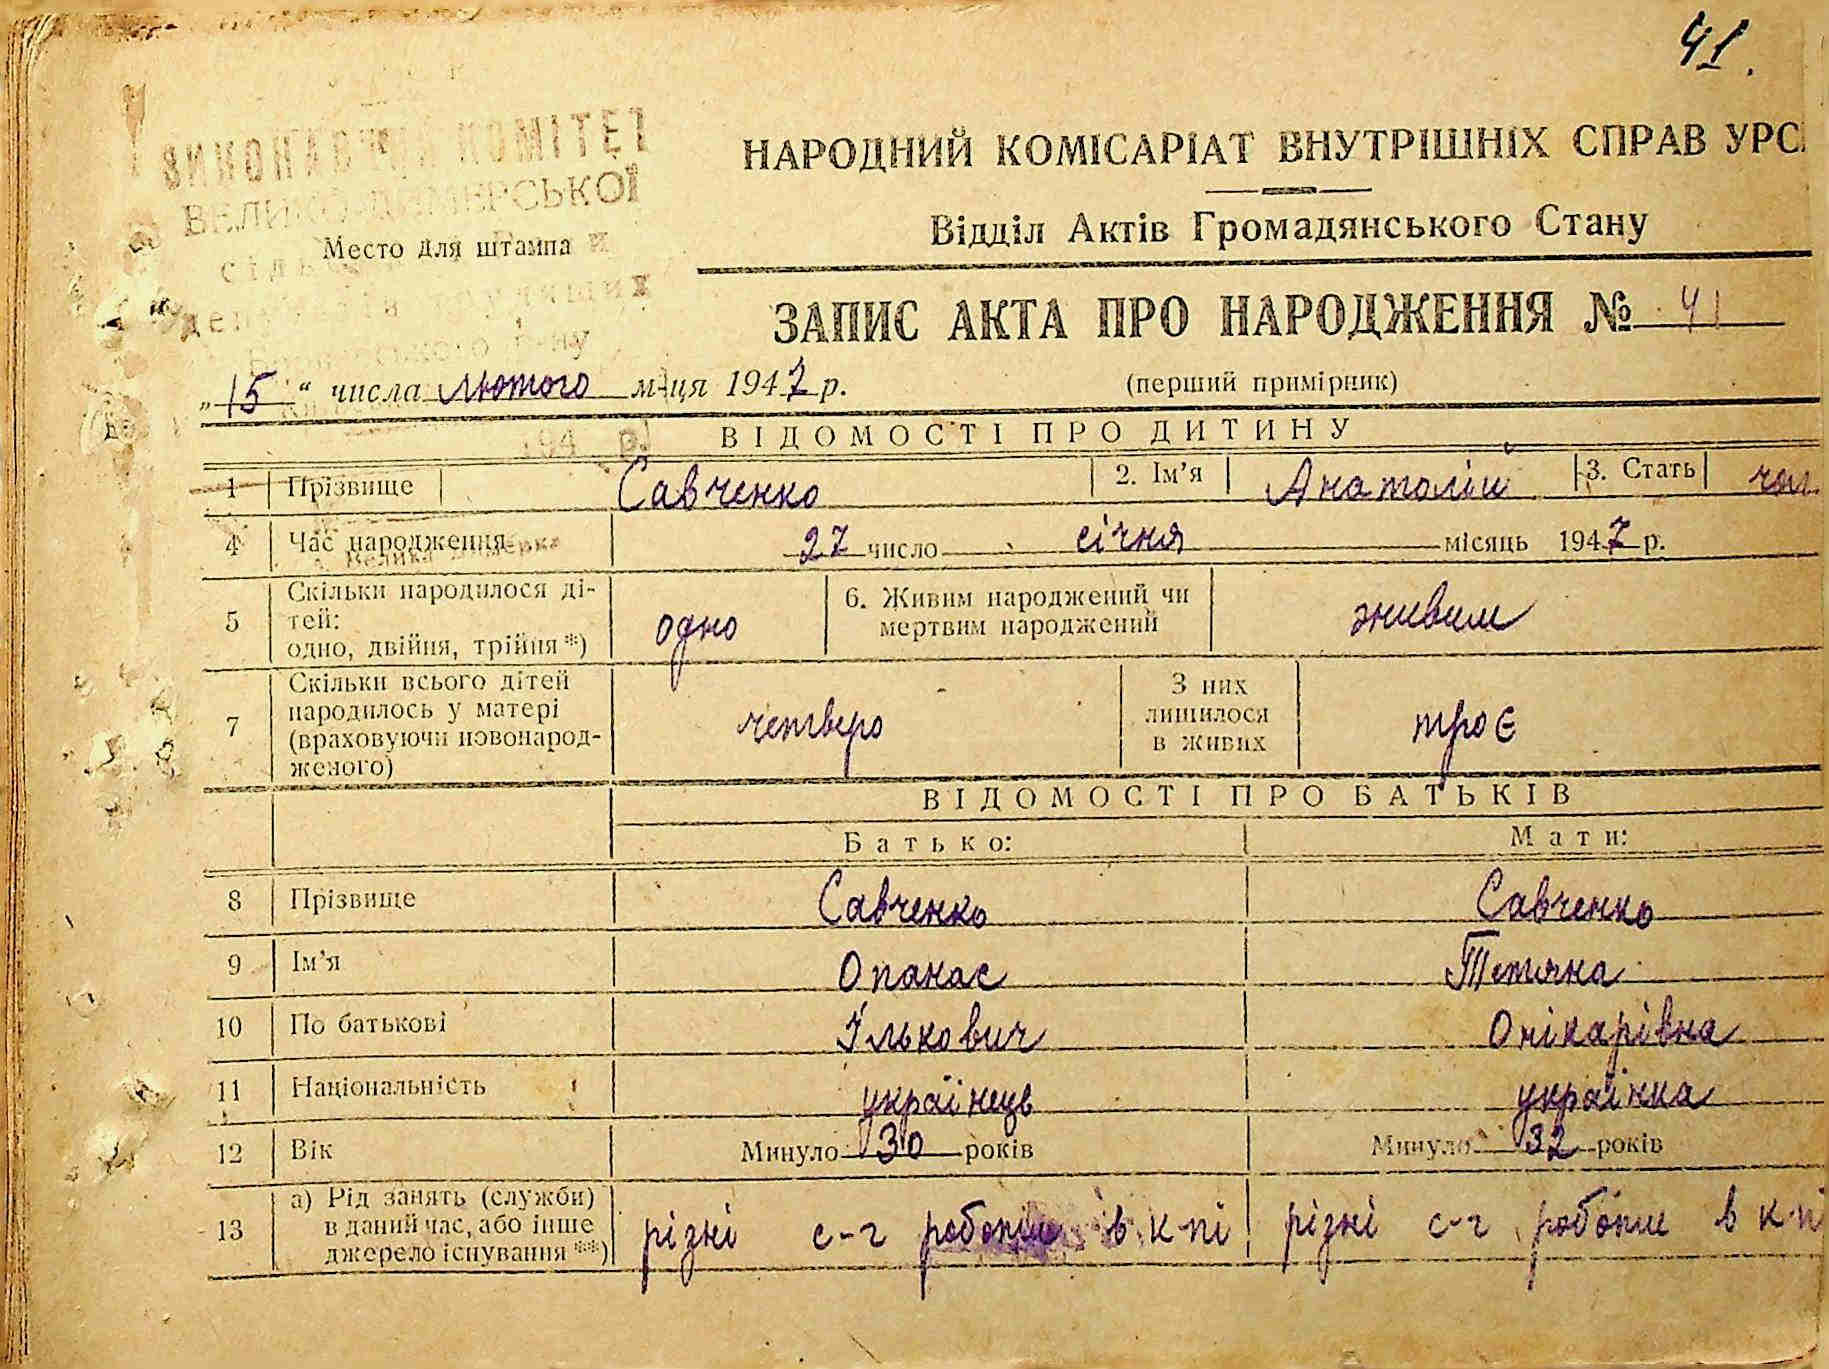 41.
ВИКОНАВЧ КОМІТЕТ
ВЕЛИКО-ДИМЕРСЬКОЇ
НАРОДНИЙ КОМІСАРІАТ ВНУТРІШНІХ СПРАВ УРС
Відділ Актів Громадянського Стану
Место для штампа
ЗАПИС АКТА ПРО НАРОДЖЕННЯ № 41
„15“ числа лютого м-ця 1947 р. (перший примірник)
194 р.
ВІДОМОСТІ ПРО ДИТИНУ
1 Прізвище Савченко 2. Ім'я Анатолій 3. Стать чол.
4 Час народження 27 число січня місяць 1947 р.
Велика Димерка
5 Скільки народилося ді-
тей:
одно, двійня, трійня*) одно 6. Живим народжений чи
мертвим народжений живим
7 Скільки всього дітей
народилось у матері
(враховуючи новонарод-
женого) четверо З них
лишилося
в живих троє
ВІДОМОСТІ ПРО БАТЬКІВ
Батько: Мати:
8 Прізвище Савченко Савченко
9 Ім'я Опанас Тетяна
10 По батькові Ількович Онікарівна
11 Національність українець українка
12 Вік Минуло 30 років Минуло 32 років
13 а) Рід занять (служби)
в даний час, або інше
джерело існування **) різні с-г роботи в к-пі різні с-г роботи в к-п